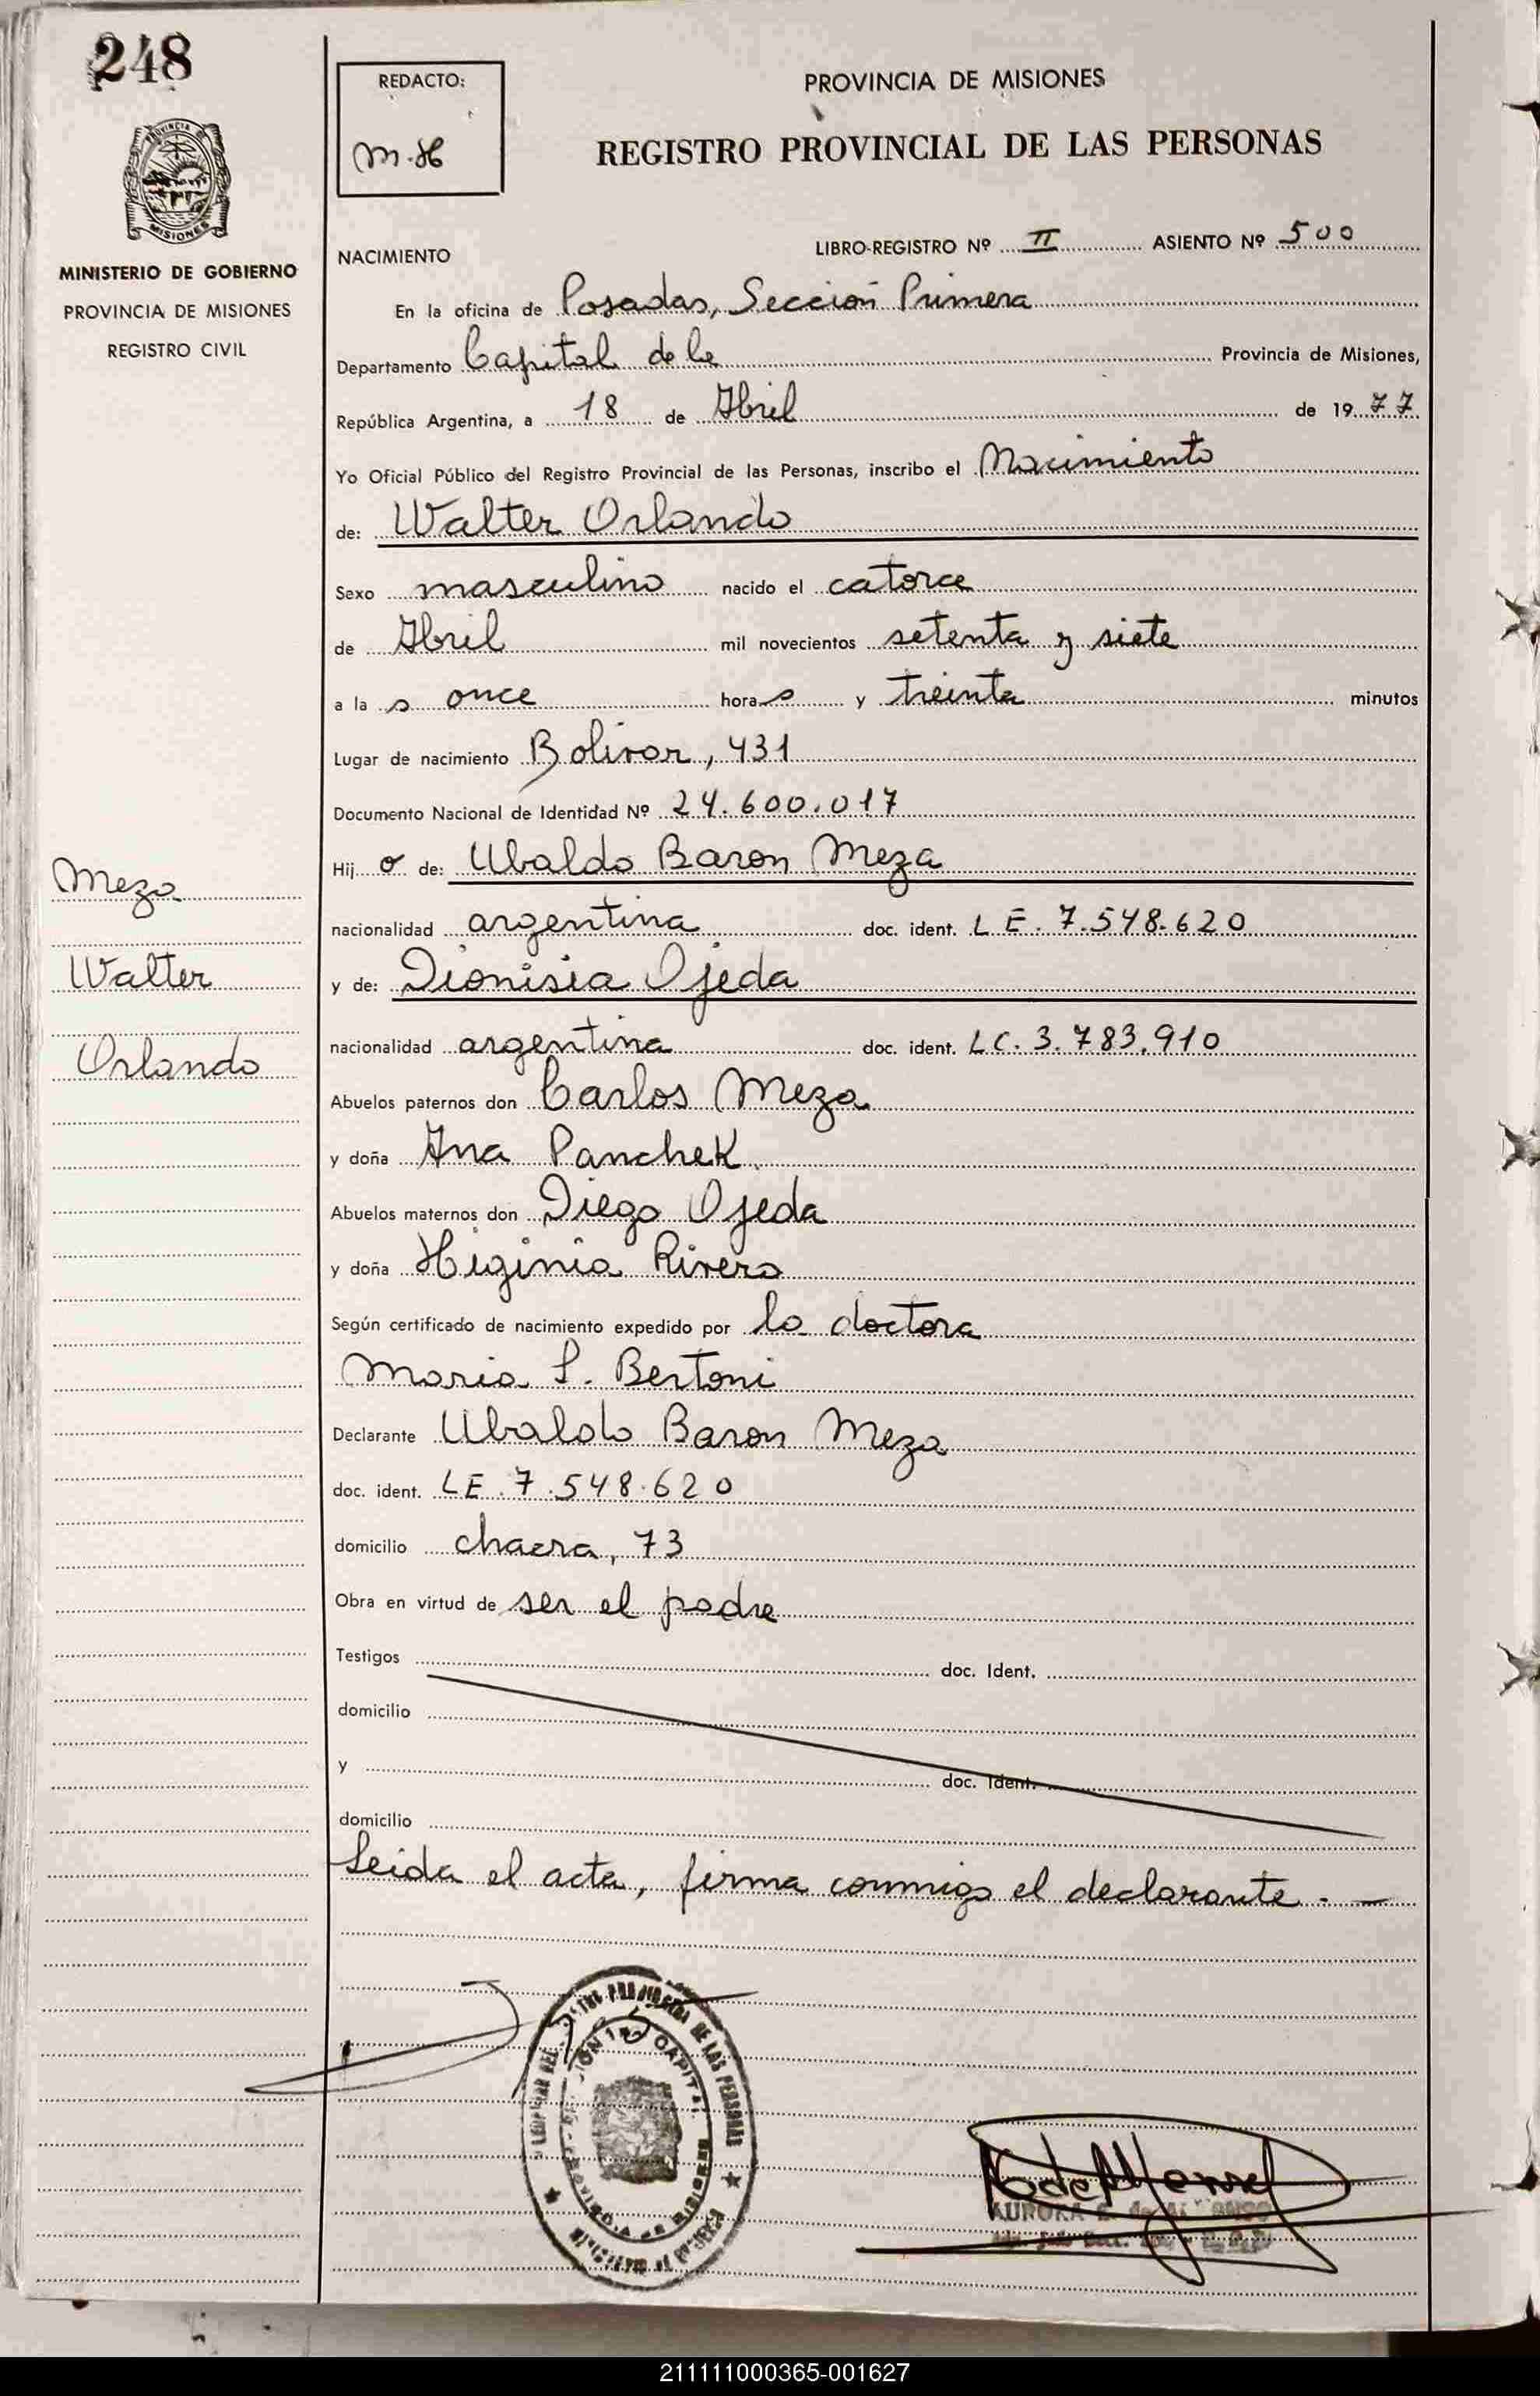 248
REDACTO:
M.H
PROVINCIA DE MISIONES
REGISTRO PROVINCIAL DE LAS PERSONAS
PROVINCIA DE
MISIONES
MINISTERIO DE GOBIERNO
PROVINCIA DE MISIONES
REGISTRO CIVIL
NACIMIENTO
LIBRO-REGISTRO Nº II ASIENTO Nº 500
En la oficina de Posadas, Sección Primera
Departamento Capital de la Provincia de Misiones,
República Argentina, a 18 de Abril de 1977
Yo Oficial Público del Registro Provincial de las Personas, inscribo el Nacimiento
de: Walter Orlando
Sexo masculino nacido el catorce
de Abril mil novecientos setenta y siete
a la s once hora s y treinta minutos
Lugar de nacimiento Bolivar, 431
Documento Nacional de Identidad Nº 24.600.017
Hij o de: Ubaldo Baron Meza
nacionalidad argentina doc. ident. LE. 7.548.620
y de: Dionisia Ojeda
nacionalidad argentina doc. ident. LC. 3.783.910
Abuelos paternos don Carlos Meza
y doña Ana Panchek
Abuelos maternos don Diego Ojeda
y doña Higinia Rivero
Según certificado de nacimiento expedido por la doctora
Maria S. Bertoni
Declarante Ubaldo Baron Meza
doc. ident. LE. 7.548.620
domicilio chacra, 73
Obra en virtud de ser el padre
Testigos doc. Ident.
domicilio
y doc. Ident.
domicilio
Leida el acta, firma conmigo el declarante. —
Meza
Walter
Orlando
PROVINCIAL DE LAS PERSONAS
CAPITAL
AURORA
211111000365-001627